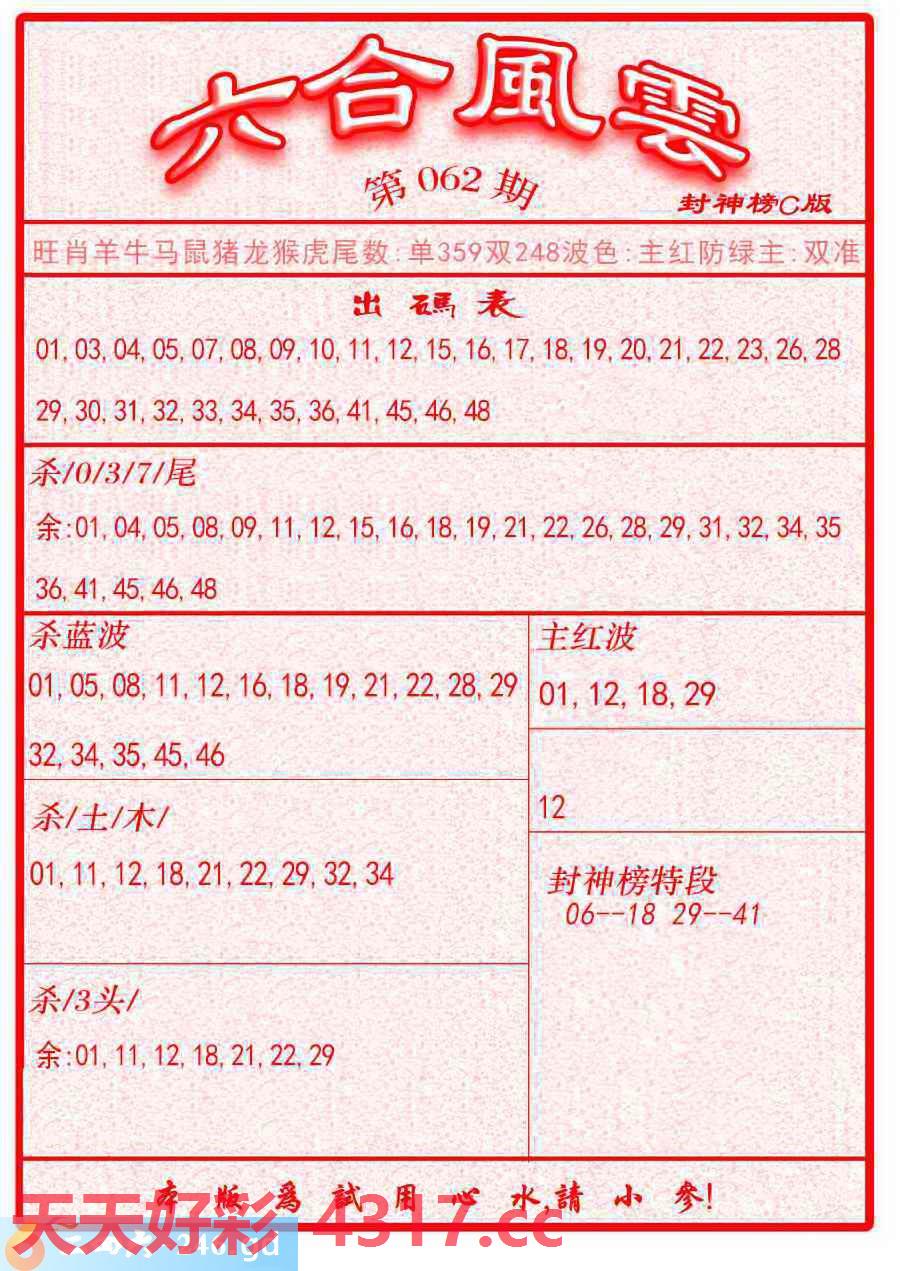 六合風雲
第 062 期
封神榜C版
旺肖羊牛马鼠猪龙猴虎尾数:单359双248波色:主红防绿主:双准
出碼表
01,03,04,05,07,08,09,10,11,12,15,16,17,18,19,20,21,22,23,26,28
29,30,31,32,33,34,35,36,41,45,46,48
杀/0/3/7/尾
余:01,04,05,08,09,11,12,15,16,18,19,21,22,26,28,29,31,32,34,35
36,41,45,46,48
杀蓝波
01,05,08,11,12,16,18,19,21,22,28,29
32,34,35,45,46
主红波
01,12,18,29
12
杀/土/木/
01,11,12,18,21,22,29,32,34
封神榜特段
06--18 29--41
杀/3头/
余:01,11,12,18,21,22,29
本版爲試用心水,請小參!
天天好彩 4317.cc
246.gd